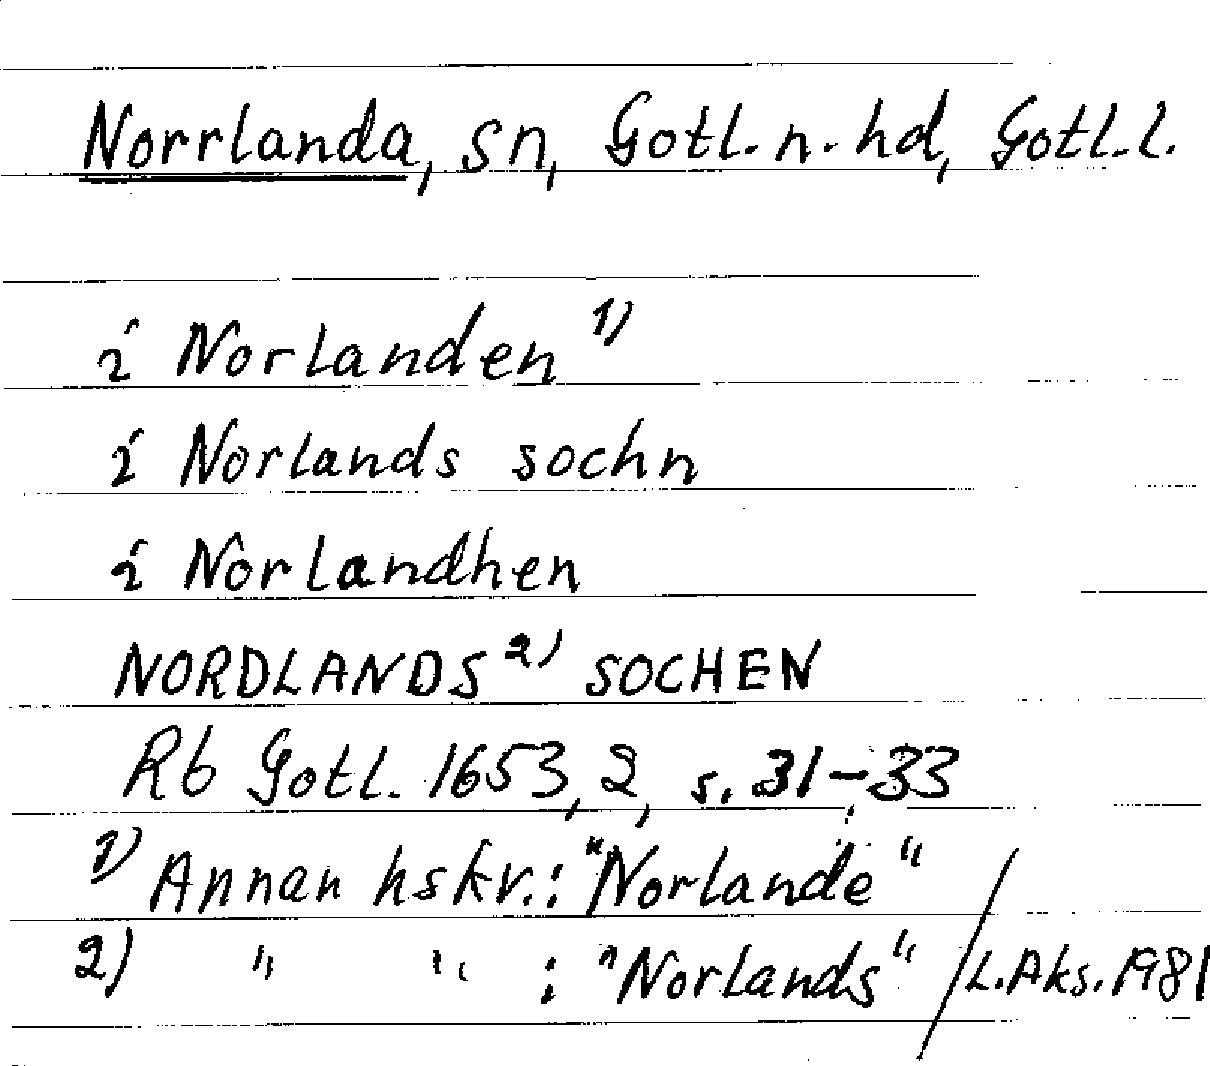 Norrlanda, sn, Gotl. n. hd, Gotl. l.
i Norlanden 1)
i Norlands sochn
i Norlandhen
NORDLANDS 2) SOCHEN
Rb Gotl. 1653, 2, s. 31-33
1) Annan hskr.: "Norlande"
2) " " : "Norlands" / L. Aks. 1981